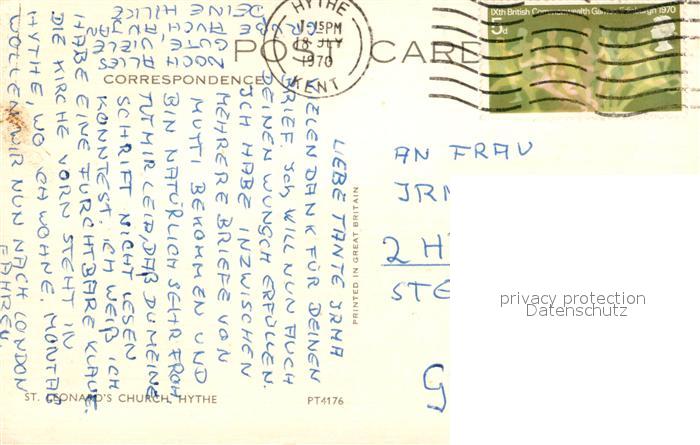 HYTHE
1-15PM
18 JLY
1970
KENT
IXth British Commonwealth Games Edinburgh 1970
5d
POST CARD
CORRESPONDENCE
LIEBE TANTE IRMA
VIELEN DANK FÜR DEINEN
BRIEF. ICH WILL NUN AUCH
DEINEN WUNSCH ERFÜLLEN.
ICH HABE INZWISCHEN
MEHRERE BRIEFE VON
MUTTI BEKOMMEN UND
BIN NATÜRLICH SEHR FROH
TUT MIR LEID, DAß DU MEINE
SCHRIFT NICHT LESEN
KONNTEST. ICH WEIß ICH
HABE EINE FURCHTBARE KLAUE.
DIE KIRCHE VORN STEHT IN
HYTHE, WO ICH WOHNE. MONTAG
WOLLEN WIR NUN NACH LONDON
FAHREN.
NOCH
ALLES
GUTE
AUCH
DEINE
AN FRAU
2 H
STE
G
PRINTED IN GREAT BRITAIN
ST. LEONARD'S CHURCH, HYTHE
PT4176
privacy protection
Datenschutz